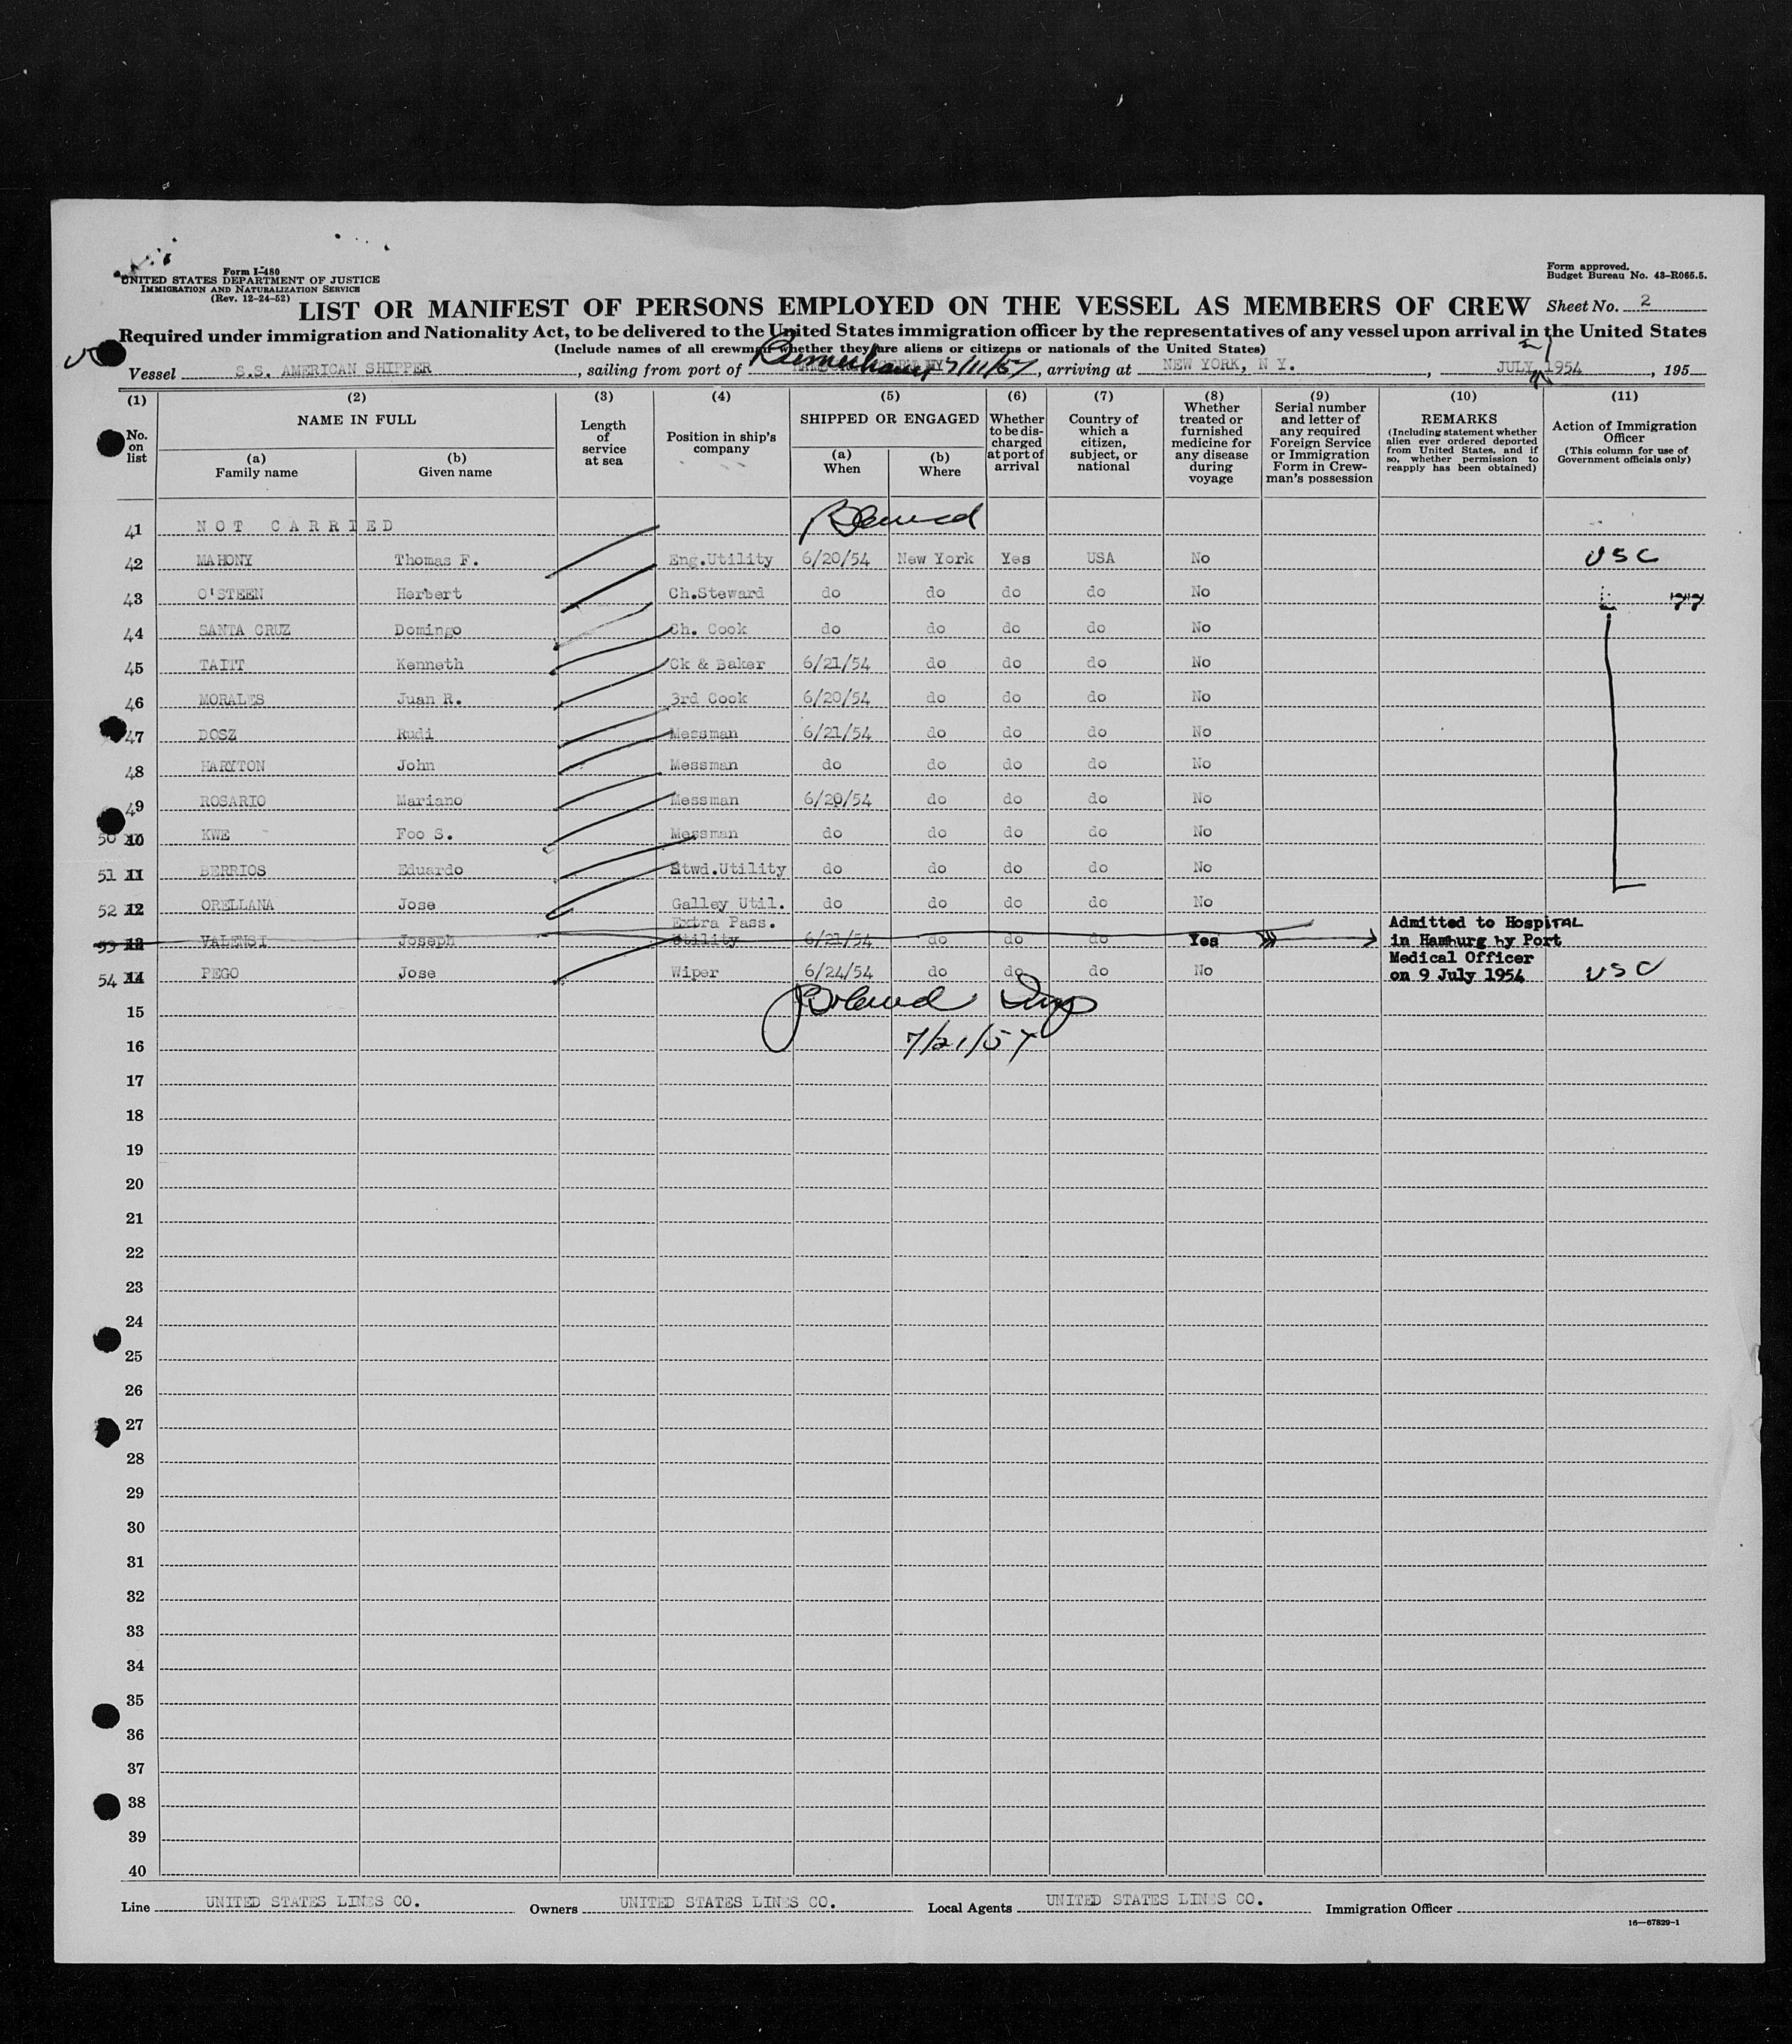 Form I-480
UNITED STATES DEPARTMENT OF JUSTICE
IMMIGRATION AND NATURALIZATION SERVICE
(Rev. 12-24-52)
Form approved.
Budget Bureau No. 43-R065.5.
LIST OR MANIFEST OF PERSONS EMPLOYED ON THE VESSEL AS MEMBERS OF CREW
Sheet No. 2
Required under immigration and Nationality Act, to be delivered to the United States immigration officer by the representatives of any vessel upon arrival in the United States
(Include names of all crewmen whether they are aliens or citizens or nationals of the United States)
Vessel S.S. AMERICAN SHIPPER, sailing from port of Bremerhaven 7/11/54, arriving at NEW YORK, N Y., JULY 1954, 195
(1) No. on list
(2) NAME IN FULL
(a) Family name
(b) Given name
(3) Length of service at sea
(4) Position in ship's company
(5) SHIPPED OR ENGAGED
(a) When
(b) Where
(6) Whether to be discharged at port of arrival
(7) Country of which a citizen, subject, or national
(8) Whether treated or furnished medicine for any disease during voyage
(9) Serial number and letter of any required Foreign Service or Immigration Form in Crewman's possession
(10) REMARKS (Including statement whether alien ever ordered deported from United States, and if so, whether permission to reapply has been obtained)
(11) Action of Immigration Officer (This column for use of Government officials only)
41 NOT CARRIED
42 MAHONY Thomas F. Eng.Utility 6/20/54 New York Yes USA No USC
43 O'STEEN Herbert Ch.Steward do do do do No
44 SANTA CRUZ Domingo Ch. Cook do do do do No
45 TAITT Kenneth Ck & Baker 6/21/54 do do do No
46 MORALES Juan R. 3rd Cook 6/20/54 do do do No
47 DOSZ Rudi Messman 6/21/54 do do do No
48 HARYTON John Messman do do do do No
49 ROSARIO Mariano Messman 6/20/54 do do do No
50 10 KWE Foo S. Messman do do do do No
51 11 BERRIOS Eduardo Stwd.Utility do do do do No
52 12 ORELLANA Jose Galley Util. do do do do No
53 13 VALENSI Joseph Extra Pass. Utility 6/21/54 do do do Yes Admitted to Hospital in Hamburg by Port Medical Officer on 9 July 1954
54 14 PEGO Jose Wiper 6/24/54 do do do No USC
15
7/21/54
16
17
18
19
20
21
22
23
24
25
26
27
28
29
30
31
32
33
34
35
36
37
38
39
40
Line UNITED STATES LINES CO. Owners UNITED STATES LINES CO. Local Agents UNITED STATES LINES CO. Immigration Officer
16—67829-1